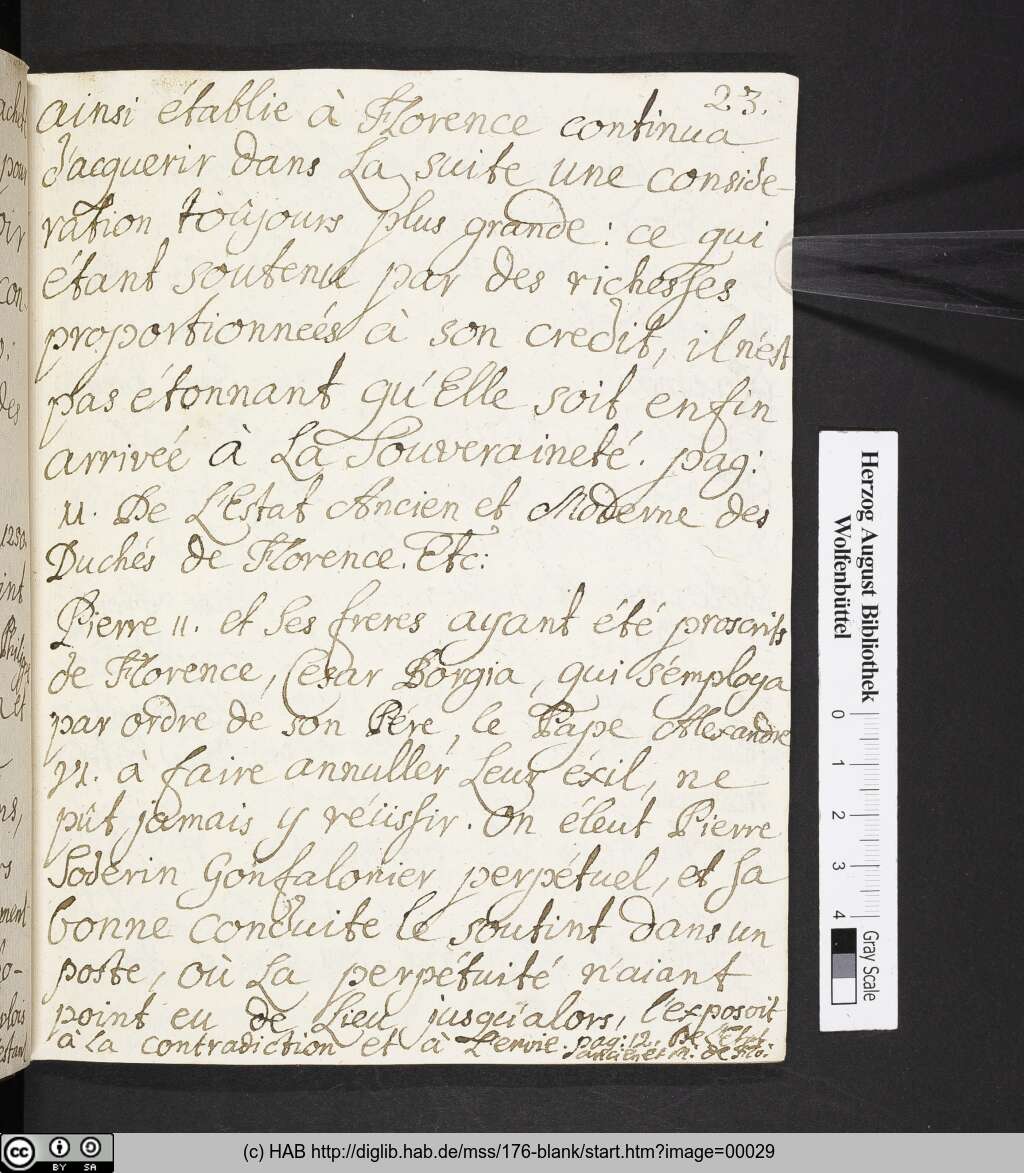 23.
ainsi établie à Florence continua
d'acquerir dans La suite une conside-
ration toûjours plus grande: ce qui
étant soutenu par des richesses
proportionneés à son credit, il n'est
pas étonnant qu'Elle soit enfin
arrivée à La Souveraineté. pag:
11. De L'Estat Ancien et Moderne des
Duchés de Florence. Etc:
Pierre II. et Ses freres ayant été proscrits
de Florence, Cesar Borgia, qui s'employa
par ordre de son Pére, le Pape Alexandre
VI. à faire annullér Leur éxil, ne
pût jamais y réüssir. On éleut Pierre
Soderin Gonfalonier perpétuel, et sa
bonne conduite le soutint dans un
poste, où La perpétuité n'aiant
point eu de Lieu jusqu'alors, l'exposoit
à La contradiction et à L'envie. pag: 12. De L'Etat
ancien et M: de Flo:
achet
pour
oir
con
des
1250
int
Philippe
et
ns,
rs
ment
plois
estant
Herzog August Bibliothek
Wolfenbüttel
0 1 2 3 4
Gray Scale
cc BY SA
(c) HAB http://diglib.hab.de/mss/176-blank/start.htm?image=00029